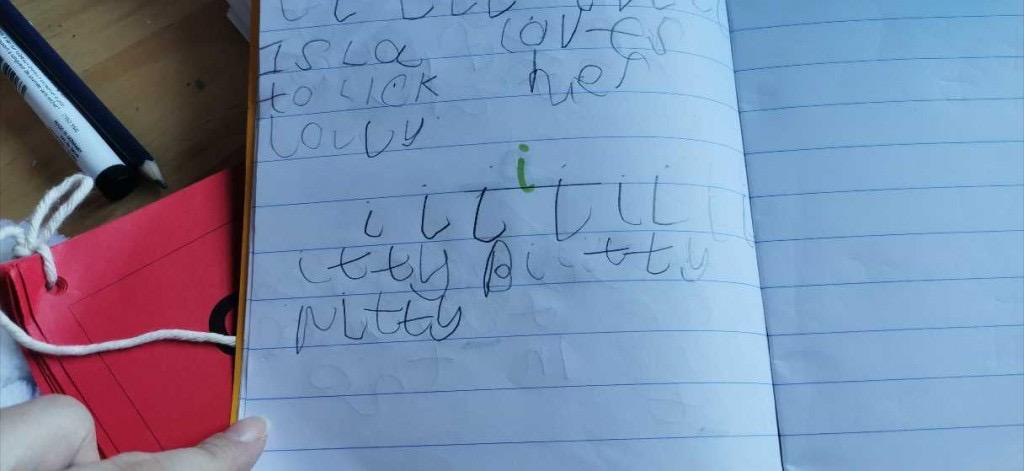 ISLa lOVes
to LICK her
LOLLy
i
i i i i i i
itty Biitty
pitty